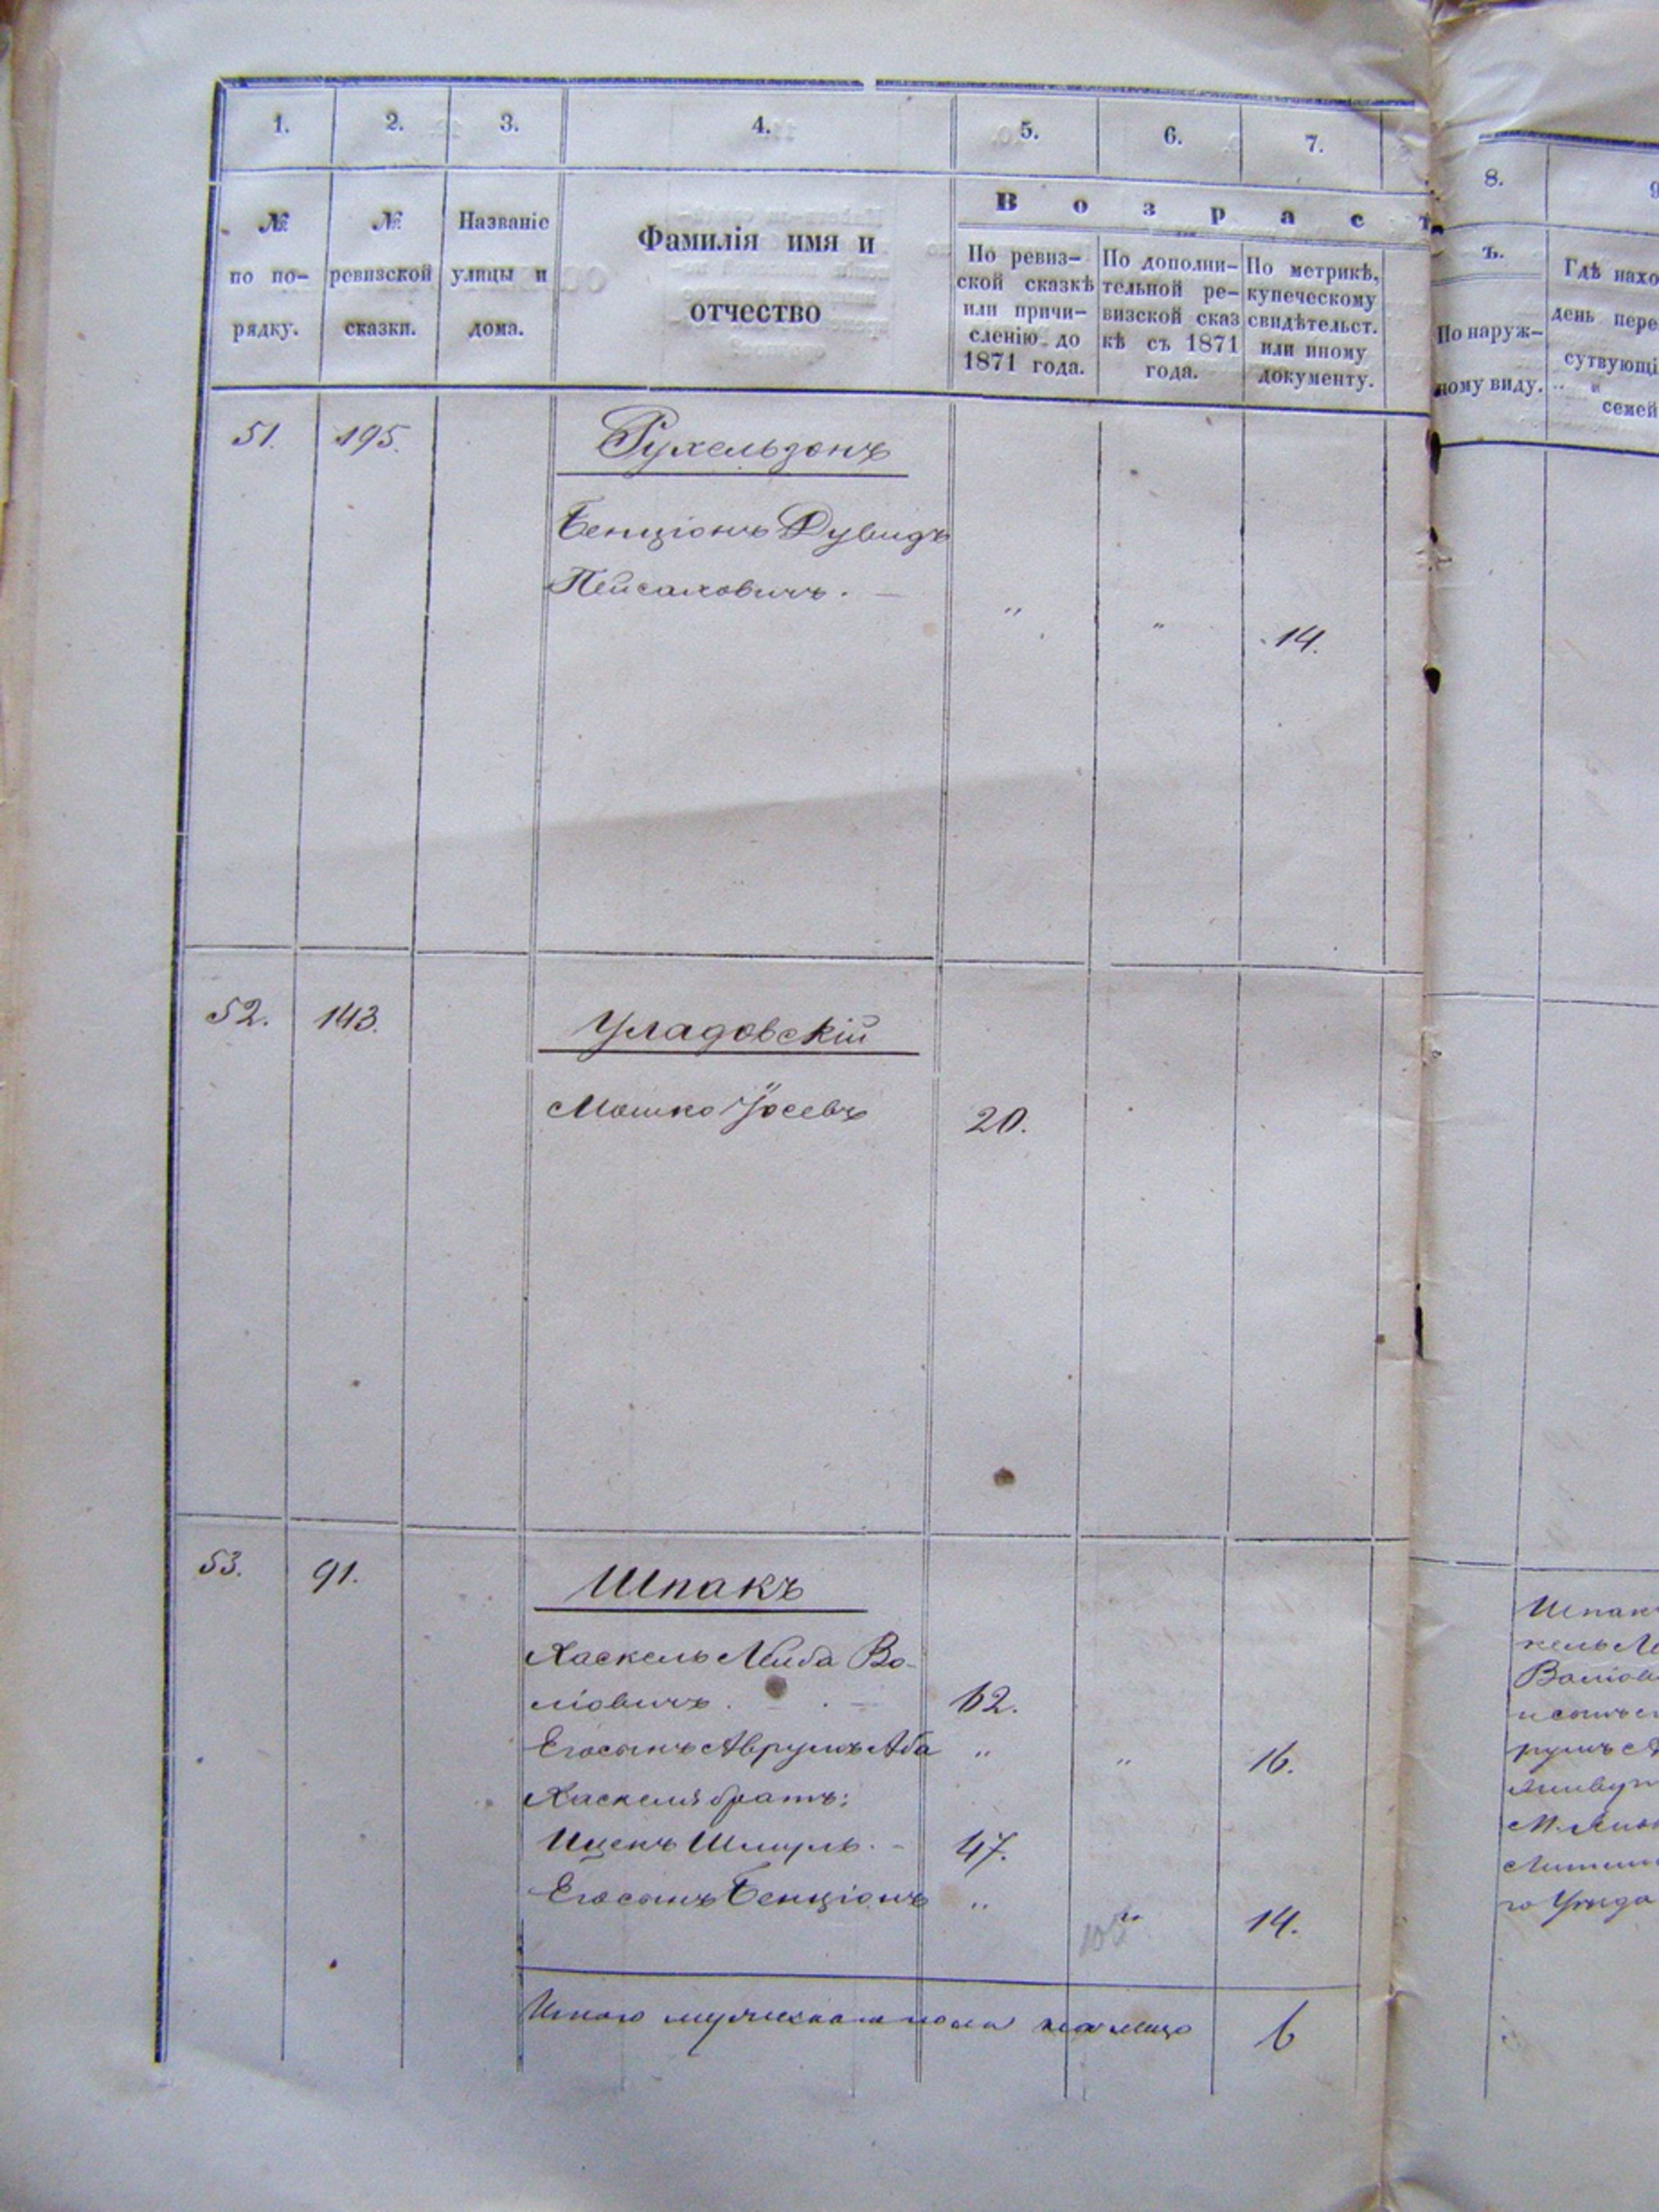 1. 2. 3. 4. 5. 6. 7. 8. 9
В о з р а с т ъ.
№ по по- рядку.
№ ревизской сказки.
Названіе улицы и дома.
Фамилія имя и
отчество
По ревиз-
ской сказкѣ
или причи-
сленію до
1871 года.
По дополни-
тельной ре-
визской сказ
кѣ съ 1871
года.
По метрикѣ,
купеческому
свидѣтельст.
или иному
документу.
По наруж-
ному виду.
Гдѣ нахо
день пере
сутвующі
и
семей
51. 195. Рухельзонъ
Бенціонъ Дувидъ
Пейсаховичъ. " " 14.
52. 143. Уладовскій
Мошко Іосевъ 20.
53. 91. Шпакъ
Хаскель Лейба Во-
ліовичъ. 62.
Его сынъ Аврумъ Аба " " 16.
Хаскеля братъ:
Ицекъ Шмуль. 47.
Его сынъ Бенціонъ " " 14.
Итого мужескаго пола на лицо 6
Шпакъ
кель Ле
Воліов
и сынъ е
румъ А
го Уѣзда